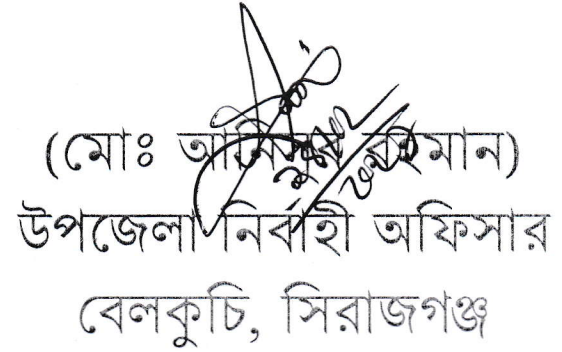 (মোঃ আনিসুর রহমান)
উপজেলা নির্বাহী অফিসার
বেলকুচি, সিরাজগঞ্জ